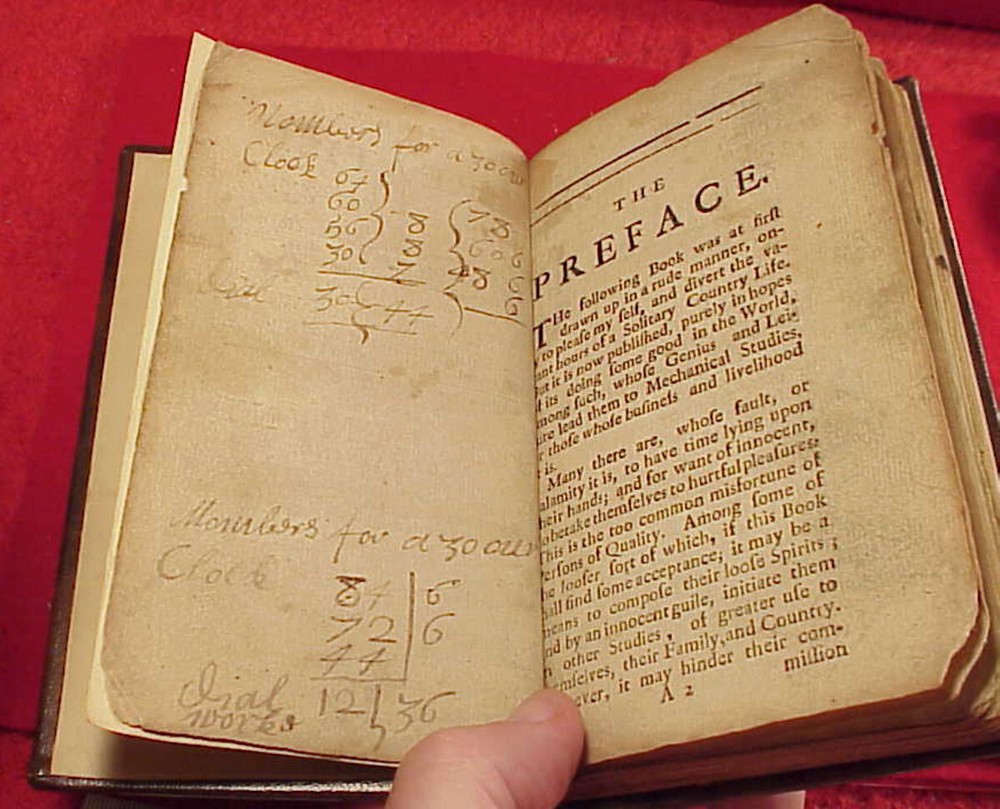 Numbers for a 30 our
Clock 64
60 8 78
56 8 606
30 7 48 6
Dial 30 44 6
Numbers for a 30 our
Clock
84 6
72 6
44
Dial 12 36
works
THE
PREFACE.
THe following Book was at firſt
drawn up in a rude manner, on-
to pleaſe my ſelf, and divert the va-
ant hours of a Solitary Country Life.
ut it is now publiſhed, purely in hopes
f its doing ſome good in the World,
mong ſuch, whoſe Genius and Lei-
ure lead them to Mechanical Studies,
thoſe whoſe buſineſs and livelihood
is.
Many there are, whoſe fault, or
alamity it is, to have time lying upon
heir hands; and for want of innocent,
betake themſelves to hurtful pleaſures:
his is the too common misfortune of
erſons of Quality. Among ſome of
he looſer ſort of which, if this Book
hall find ſome acceptance; it may be a
means to compoſe their looſe Spirits;
nd by an innocent guile, initiate them
other Studies, of greater uſe to
emſelves, their Family, and Country.
ever, it may hinder their com-
A 2 miſſion